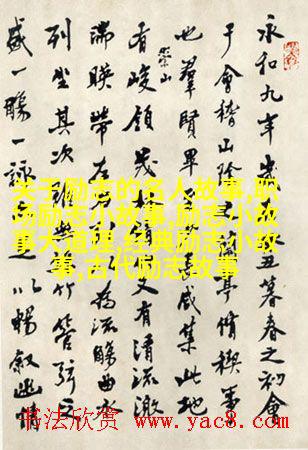 永和九年歲在丑暮春之初會
于會稽山陰亭脩稧事
也羣賢畢咸集此地
有崇山峻領茂林又有清流激
湍暎帶左右為流觴曲水
列坐其次竹管弦之
盛一觴一詠以暢叙幽情
关于励志的名人故事,职
场励志小故事,励志小故
事大道理,经典励志小故
事,古代励志故事
书法欣赏 www.yac8.com